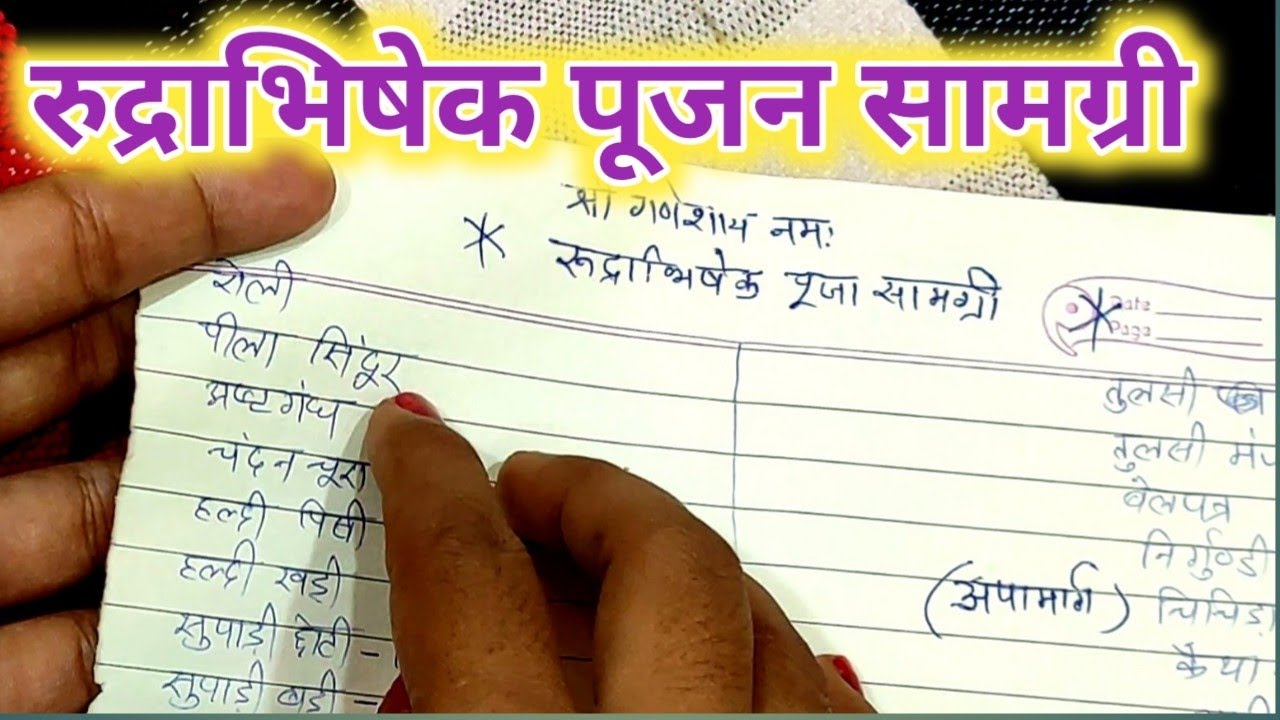 रुद्राभिषेक पूजन सामग्री
श्री गणेशाय नमः
रूद्राभिषेक पूजा सामग्री
Date
Page
रोली
पीला सिंदूर
अष्टगंध
चंदन चूरा
हल्दी पिसी
हल्दी खड़ी
सुपाड़ी छोटी -
सुपाड़ी बड़ी -
तुलसी
तुलसी
बेलपत्र
निर्गुण्डी
(अपामार्ग) चिचिड़ा
कैथा